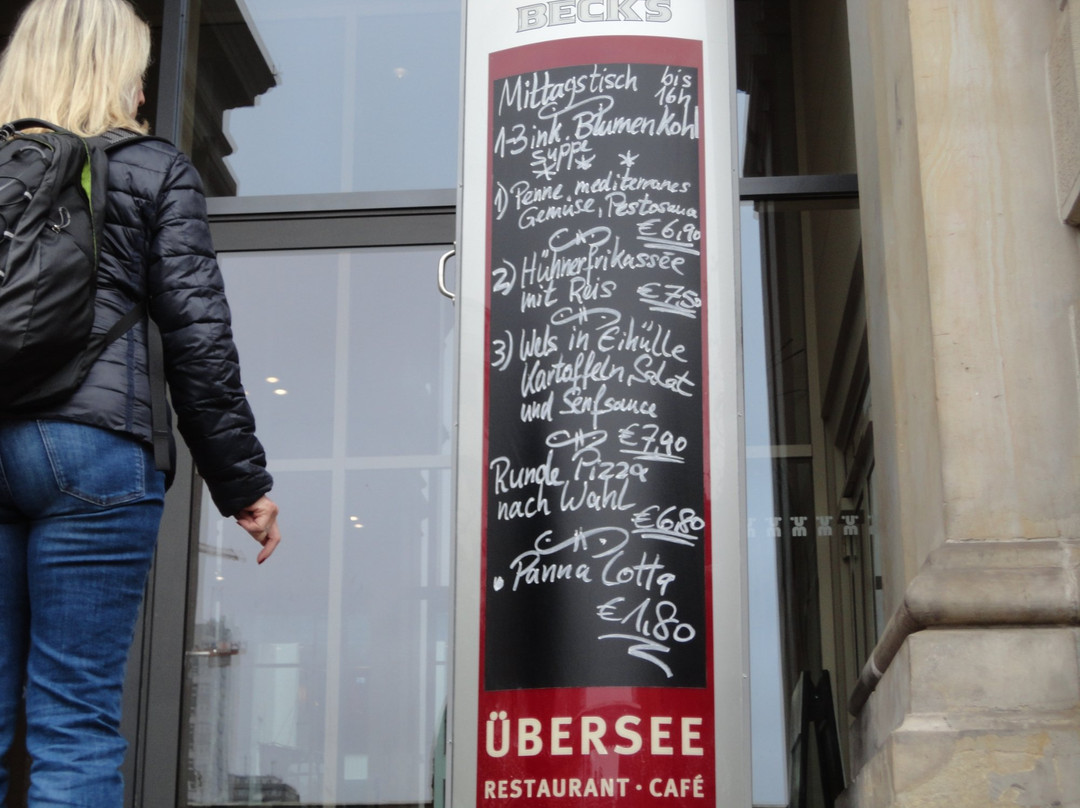 BECK'S
Mittagstisch bis
16h
1-3 ink. Blumenkohl
suppe
1) Penne, mediterranes
Gemüse, Pestosauce
€ 6,90
2) Hühnerfrikassée
mit Reis € 7,50
3) Wels in Eihülle
Kartoffeln, Salat
und Senfsauce
€ 7,90
Runde Pizza
nach Wahl
€ 6,80
• Panna Cotta
€ 1,80
ÜBERSEE
RESTAURANT · CAFÉ